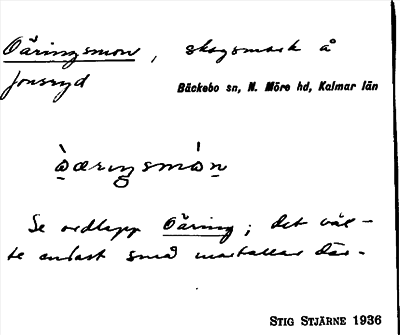 Öäringsmon, skogsmark å
Jonsryd
Bäckebo sn, N. Möre hd, Kalmar län
Se ordlapp Öäring; det väx-
te endast små martallar där.
STIG STJÄRNE 1936